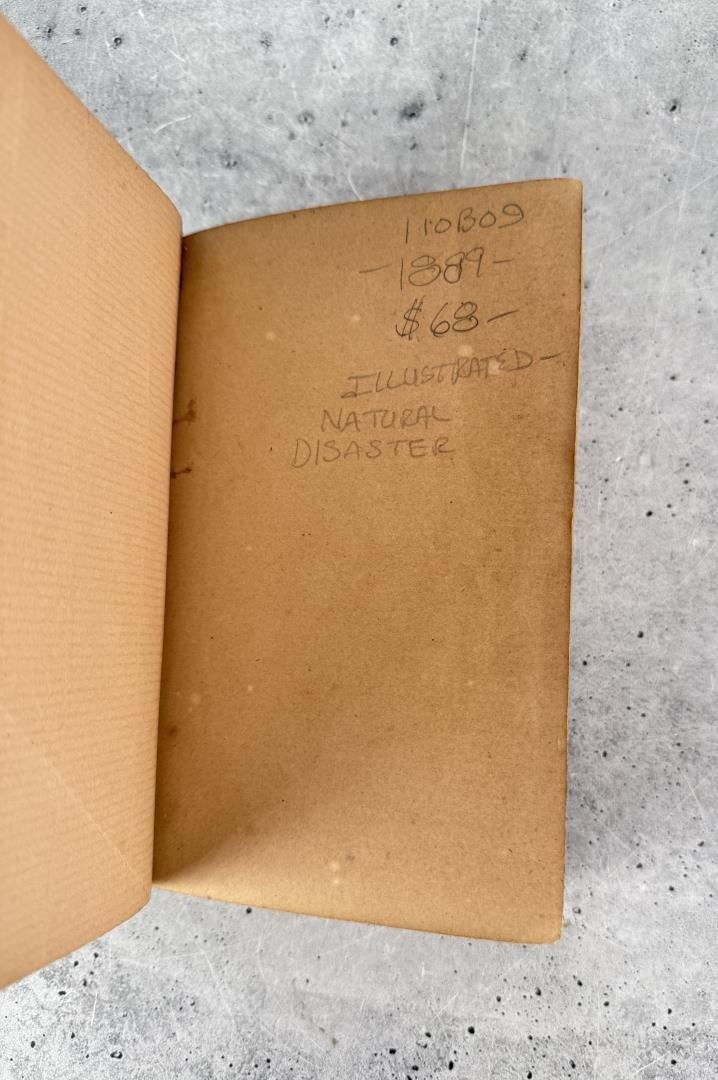 110B09
-1889-
$68-
ILLUSTRATED-
NATURAL
DISASTER